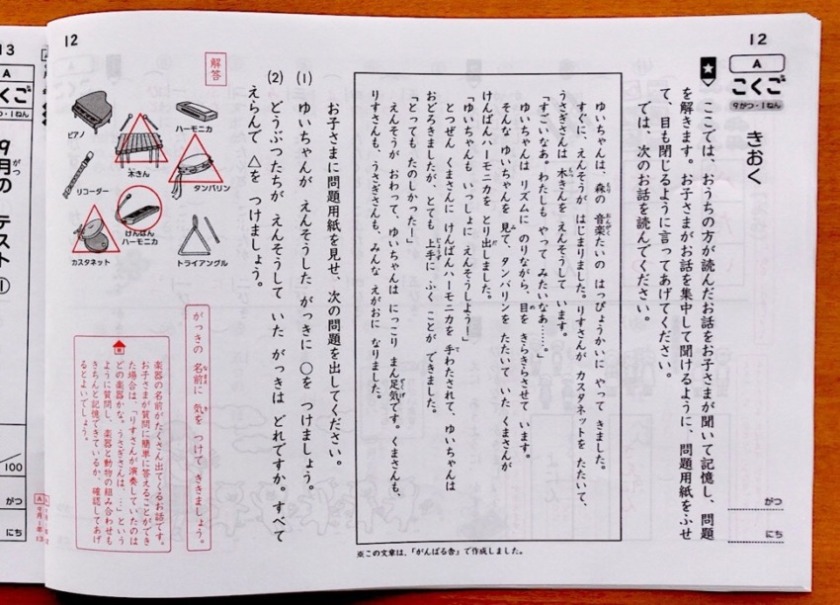 12
12
A
こくご
9がつ・1ねん
きおく
がつ
にち
ここでは、おうちの方が読んだお話をお子さまが聞いて記憶し、問題
を解きます。お子さまがお話を集中して聞けるように、問題用紙をふせ
て、目も閉じるように言ってあげてください。
では、次のお話を読んでください。
ゆいちゃんは、森の 音楽たいの はっぴょうかいに やって きました。
すぐに、えんそうが はじまりました。りすさんが カスタネットを たたいて、
うさぎさんは 木きんを えんそうして います。
「すごいなあ。わたしも やって みたいなあ……。」
ゆいちゃんは リズムに のりながら、目を きらきらさせて います。
そんな ゆいちゃんを 見て、タンバリンを たたいて いた くまさんが
けんばんハーモニカを とり出しました。
「ゆいちゃんも いっしょに えんそうしよう！」
とつぜん くまさんに けんばんハーモニカを 手わたされて、ゆいちゃんは
おどろきましたが、とても 上手に ふく ことが できました。
「とっても たのしかったー！」
えんそうが おわって、ゆいちゃんは にっこり まん足気です。くまさんも、
りすさんも、うさぎさんも、みんな えがおに なりました。
※この文章は、「がんばる舎」で作成しました。
お子さまに問題用紙を見せ、次の問題を出してください。
(1) ゆいちゃんが えんそうした がっきに ○を つけましょう。
(2) どうぶつたちが えんそうして いた がっきは どれですか。すべて
えらんで △を つけましょう。
解答
ハーモニカ
ピアノ
木きん
タンバリン
リコーダー
けんばん
ハーモニカ
カスタネット
トライアングル
がっきの 名前に 気を つけて ききましょう。
楽器の名前がたくさん出てくるお話です。
お子さまが質問に簡単に答えることができ
た場合は、「りすさんが演奏していたのは
どの楽器かな。うさぎさんは…」という
ように質問し、楽器と動物の組み合わせも
きちんと記憶できているか、確認してあげ
るとよいでしょう。
13
A
くご
9がつ・1ねん
9月の テスト ①
/100
がつ
にち